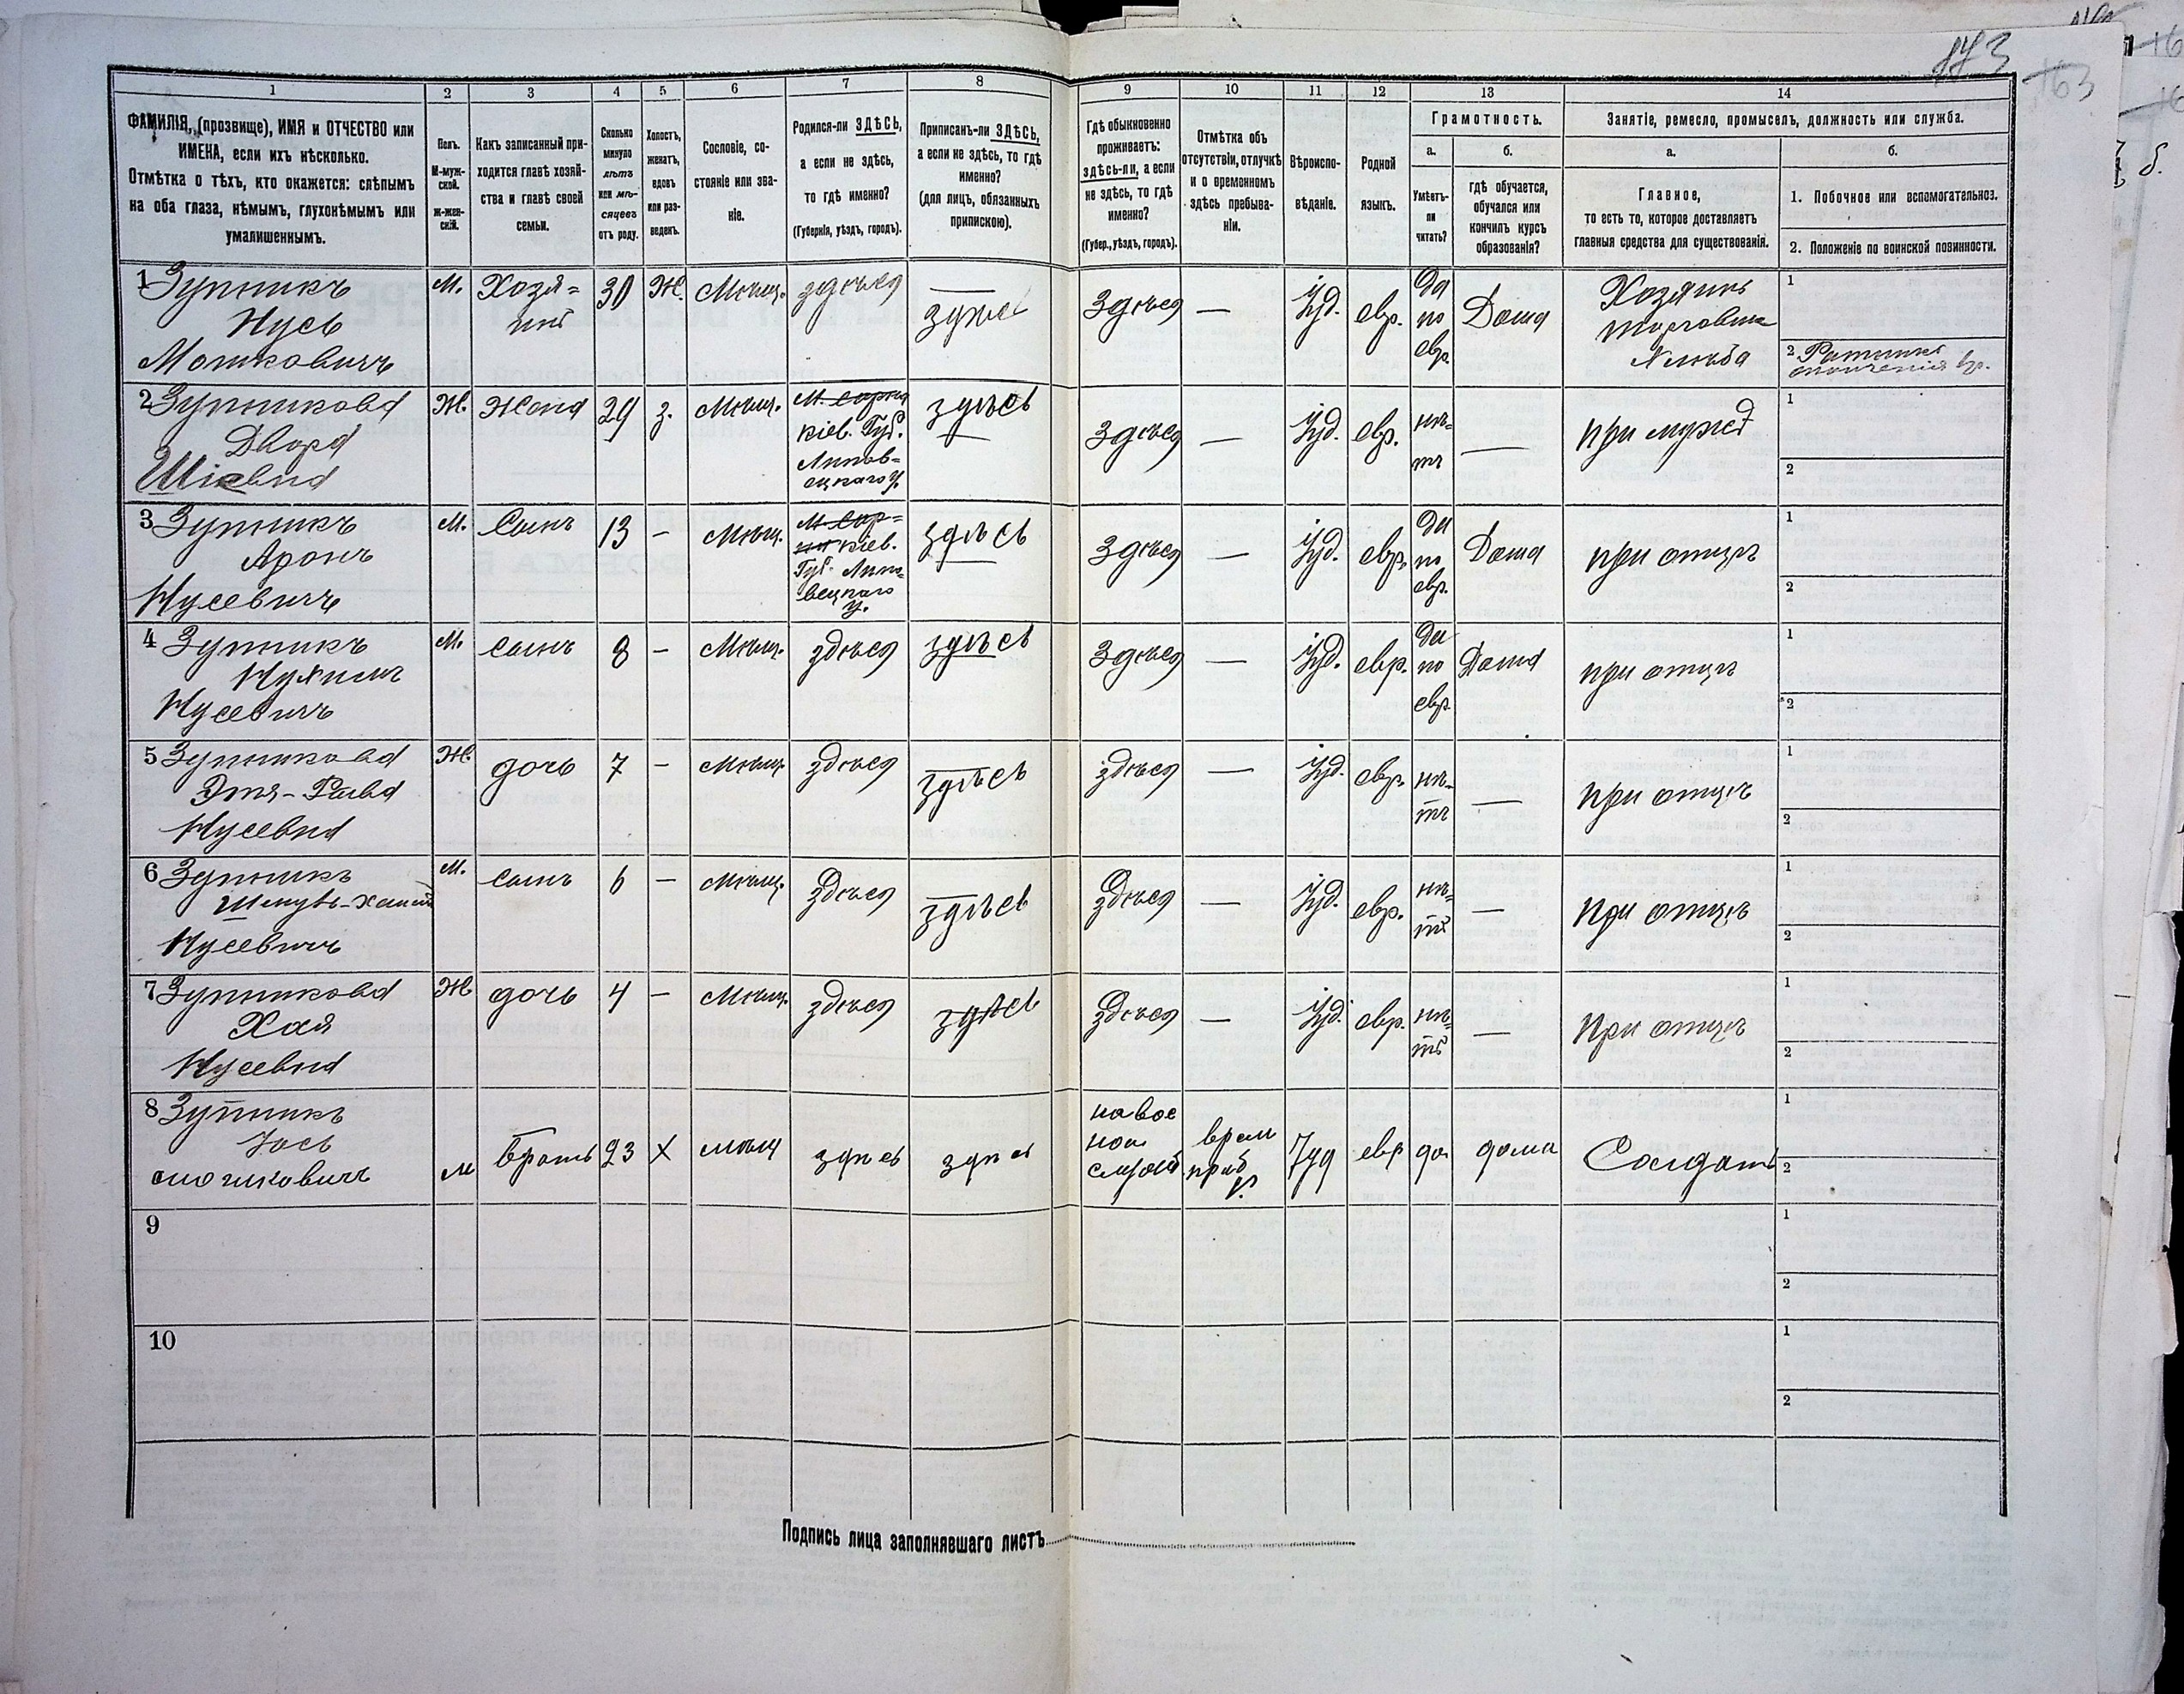 173
163
1 2 3 4 5 6 7 8 9 10 11 12 13 14
ФАМИЛІЯ, (прозвище), ИМЯ и ОТЧЕСТВО или
ИМЕНА, если ихъ нѣсколько.
Отмѣтка о тѣхъ, кто окажется: слѣпымъ
на оба глаза, нѣмымъ, глухонѣмымъ или
умалишеннымъ.
Полъ.
М-муж-
ской.
Ж-жен-
скій.
Какъ записанный при-
ходится главѣ хозяй-
ства и главѣ своей
семьи.
Сколько
минуло
лѣтъ
или мѣ-
сяцевъ
отъ роду.
Холостъ,
женатъ,
вдовъ
или раз-
веденъ.
Сословіе, со-
стояніе или зва-
ніе.
Родился-ли ЗДѢСЬ,
а если не здѣсь,
то гдѣ именно?
(Губернія, уѣздъ, городъ).
Приписанъ-ли ЗДѢСЬ,
а если не здѣсь, то гдѣ
именно?
(для лицъ, обязанныхъ
припискою).
Гдѣ обыкновенно
проживаетъ:
здѣсь-ли, а если
не здѣсь, то гдѣ
именно?
(Губер., уѣздъ, городъ).
Отмѣтка объ
отсутствіи, отлучкѣ
и о временномъ
здѣсь пребыва-
ніи.
Вѣроиспо-
вѣданіе.
Родной
языкъ.
Грамотность.
а.
Умѣетъ-
ли
читать?
б.
гдѣ обучается,
обучался или
кончилъ курсъ
образованія?
Занятіе, ремесло, промыселъ, должность или служба.
а.
Главное,
то есть то, которое доставляетъ
главныя средства для существованія.
б.
1. Побочное или вспомогательное.
2. Положеніе по воинской повинности.
1 Зупникъ
Нусь
Мошковичъ
М.
Хозя=
инъ
30
Ж.
Мѣщ.
здѣсь
здѣсь
здѣсь
—
Іуд.
евр.
да
по
евр.
Дома
Хозяинъ
торговли
хлѣба
1
2 Ратникъ
ополченія
2 Зупникова
Двора
М.
Жена
29
з.
Мѣщ.
кіев. Губ.
Липов=
ецкаго у.
здѣсь
здѣсь
—
Іуд.
евр.
нѣ=
тъ
—
при мужѣ
1
2
3 Зупникъ
Аронъ
Нусевичъ
М.
Сынъ
13
-
Мѣщ.
кіев.
Губ. Липо=
вецкаго
у.
здѣсь
здѣсь
—
Іуд.
евр.
да
по
евр.
Дома
при отцѣ
1
2
4 Зупникъ
Нухимъ
Нусевичъ
М.
сынъ
8
-
Мѣщ.
здѣсь
здѣсь
здѣсь
—
Іуд.
евр.
да
по
евр.
Дома
при отцѣ
1
2
5 Зупникова
Нусевна
Ж
дочь
7
-
Мѣщ.
здѣсь
здѣсь
здѣсь
—
Іуд.
евр.
нѣ=
тъ
—
при отцѣ
1
2
6 Зупникъ
Нусевичъ
М.
сынъ
6
—
Мѣщ.
здѣсь
здѣсь
здѣсь
—
Іуд.
евр.
нѣ=
тъ
—
при отцѣ
1
2
7 Зупникова
Хая
Нусевна
Ж
дочь
4
—
Мѣщ.
здѣсь
здѣсь
здѣсь
—
Іуд.
евр.
нѣ=
тъ
—
При отцѣ
1
2
8 Зупникъ
Іось
мошковичъ
м
братъ
23
х
мѣщ
здѣсь
здѣсь
на вое
ной
службѣ
врем
преб
Іуд
евр
да
дома
Солдатъ
1
2
9
1
2
10
1
2
Подпись лица заполнявшаго листъ